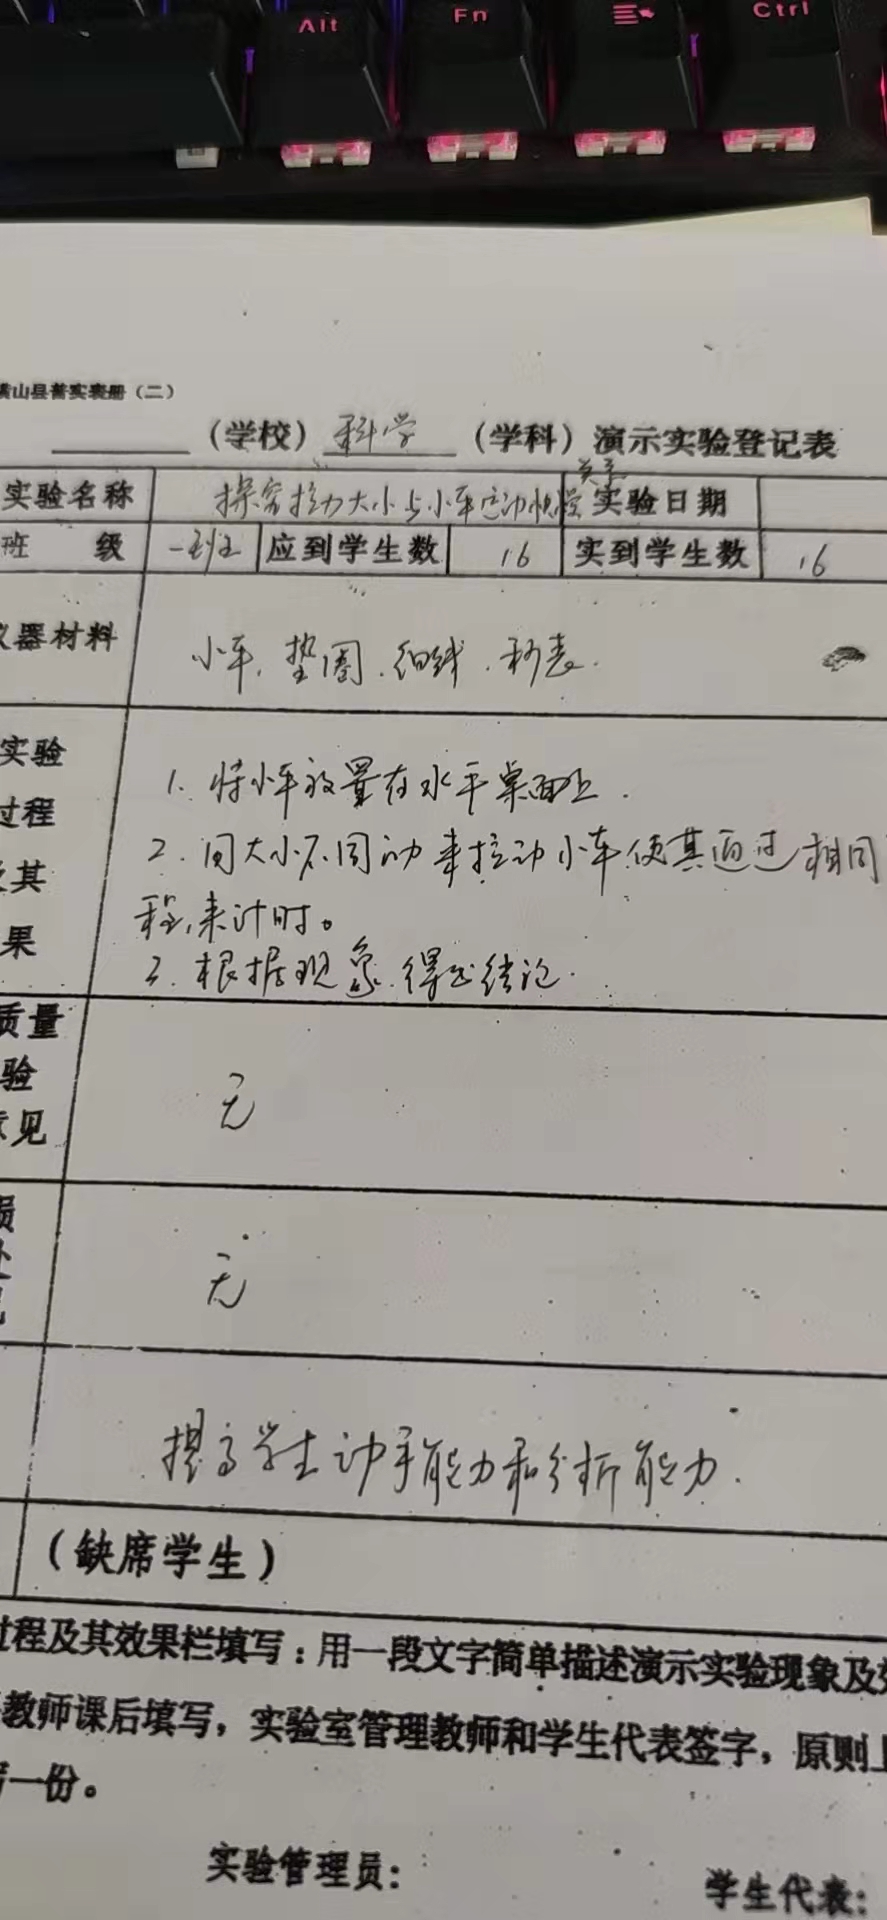 Alt
Fn
Ctrl
黄山县普实表册(二)
(学校)科学(学科)演示实验登记表
实验名称 探究拉力大小与小车运动快慢关系 实验日期
班 级 一班 应到学生数 16 实到学生数 16
仪器材料 小车、垫圈、细线、秒表.
实验
过程
及其
果
1. 将小车放置在水平桌面上.
2. 用大小不同的力来拉动小车使其通过相同
程,来计时。
3. 根据现象.得出结论.
质量
验
意见
无
损
处
见
无
提高学生动手能力和分析能力.
(缺席学生)
过程及其效果栏填写:用一段文字简单描述演示实验现象及效
教师课后填写,实验室管理教师和学生代表签字,原则上
一份。
实验管理员:
学生代表: